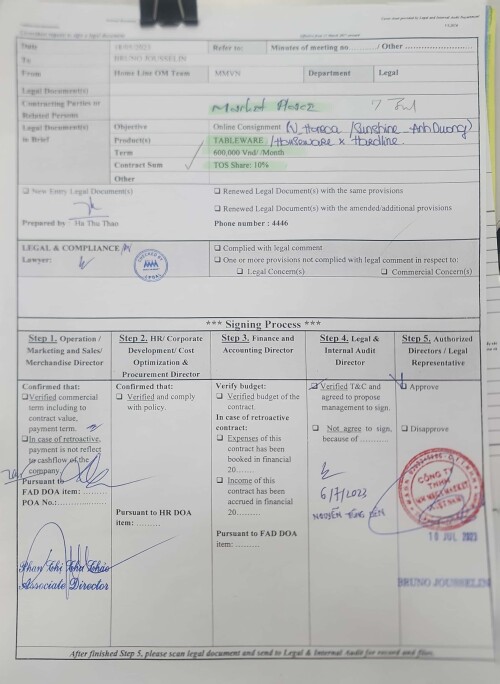 Date 18/05/2023 Refer to: Minutes of meeting no. ....../Other ......
To BRUNO JOUSSELIN
From Home Line OM Team MMVN Department Legal
Legal Document(s)
Contracting Parties or Related Persons Market Place
Legal Document(s) in Brief
Objective Online Consignment (V. Horeca /Sunshine - Anh Duong)
Product(s) TABLEWARE /Houseware x Hardline
Term 600,000 Vnd/ /Month
Contract Sum TOS Share: 10%
Other
☐ New Entry Legal Document(s)
☐ Renewed Legal Document(s) with the same provisions
☐ Renewed Legal Document(s) with the amended/additional provisions
Prepared by : Ha Thu Than Phone number : 4446
LEGAL & COMPLIANCE
Lawyer:
☐ Complied with legal comment
☐ One or more provisions not complied with legal comment in respect to:
☐ Legal Concern(s) ☐ Commercial Concern(s)
*** Signing Process ***
Step 1. Operation / Marketing and Sales/ Merchandise Director
Confirmed that:
☐ Verified commercial
term including to
contract value,
payment term.
☐ In case of retroactive,
payment is not reflect
to cashflow of the
company.
Pursuant to
FAD DOA item: ........
POA No.: ........
Phan Thi Thu Thảo
Associate Director
Step 2. HR/ Corporate Development/ Cost Optimization & Procurement Director
Confirmed that:
☐ Verified and comply
with policy.
Pursuant to HR DOA
item: ........
Step 3. Finance and Accounting Director
Verify budget:
☐ Verified budget of the
contract
In case of retroactive
contract:
☐ Expenses of this
contract has been
booked in financial
20.....
☐ Income of this
contract has been
accrued in financial
20........
Pursuant to FAD DOA
item: ......
Step 4. Legal & Internal Audit Director
☐ Verified T&C and
agreed to propose
management to sign.
☐ Not agree to sign,
because of .........
6/7/2023
Step 5. Authorized Directors / Legal Representative
☐ Approve
☐ Disapprove
CÔNG TY
TNHH
MM MEGA MARKET
10 JUL 2023
BRUNO JOUSSELIN
After finished Step 5, please scan legal document and send to Legal & Internal Audit for record and files.